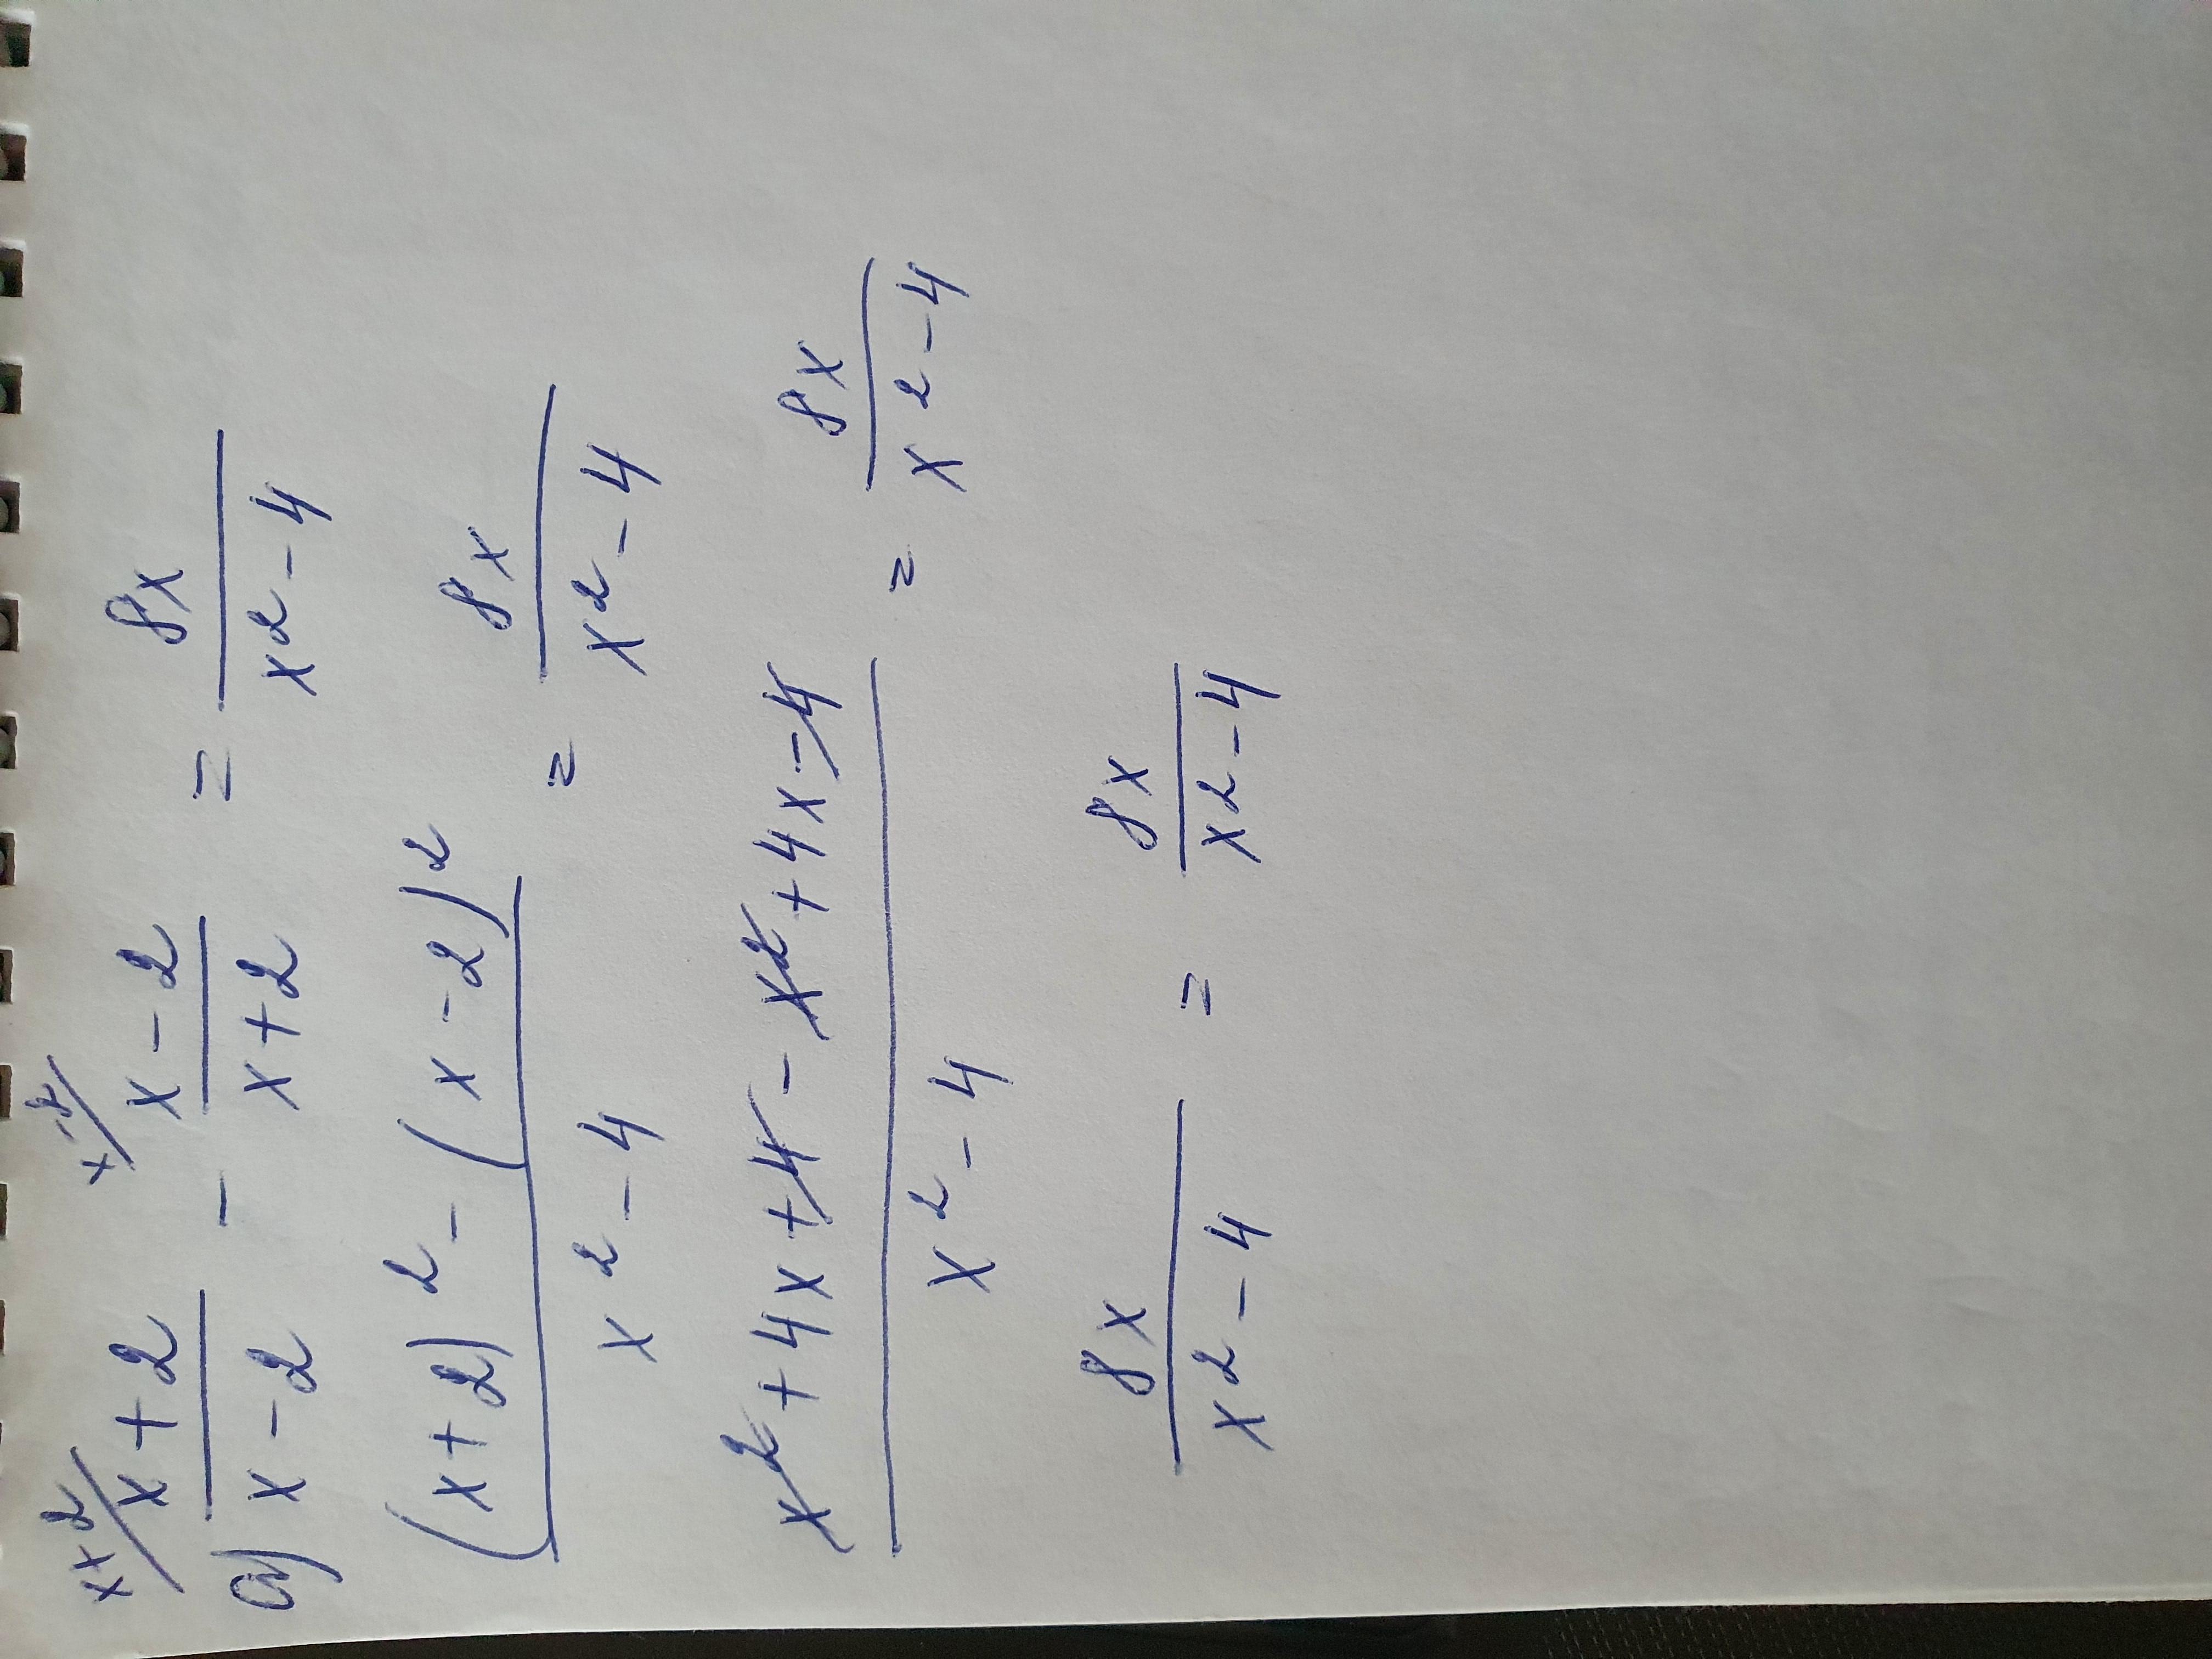 x+2/ x-2/
a) x+2/x-2 - x-2/x+2 = 8x/x²-4
(x+2)² - (x-2)²/x²-4 = 8x/x²-4
x²+4x+4-x²+4x-4/x²-4 = 8x/x²-4
8x/x²-4 = 8x/x²-4